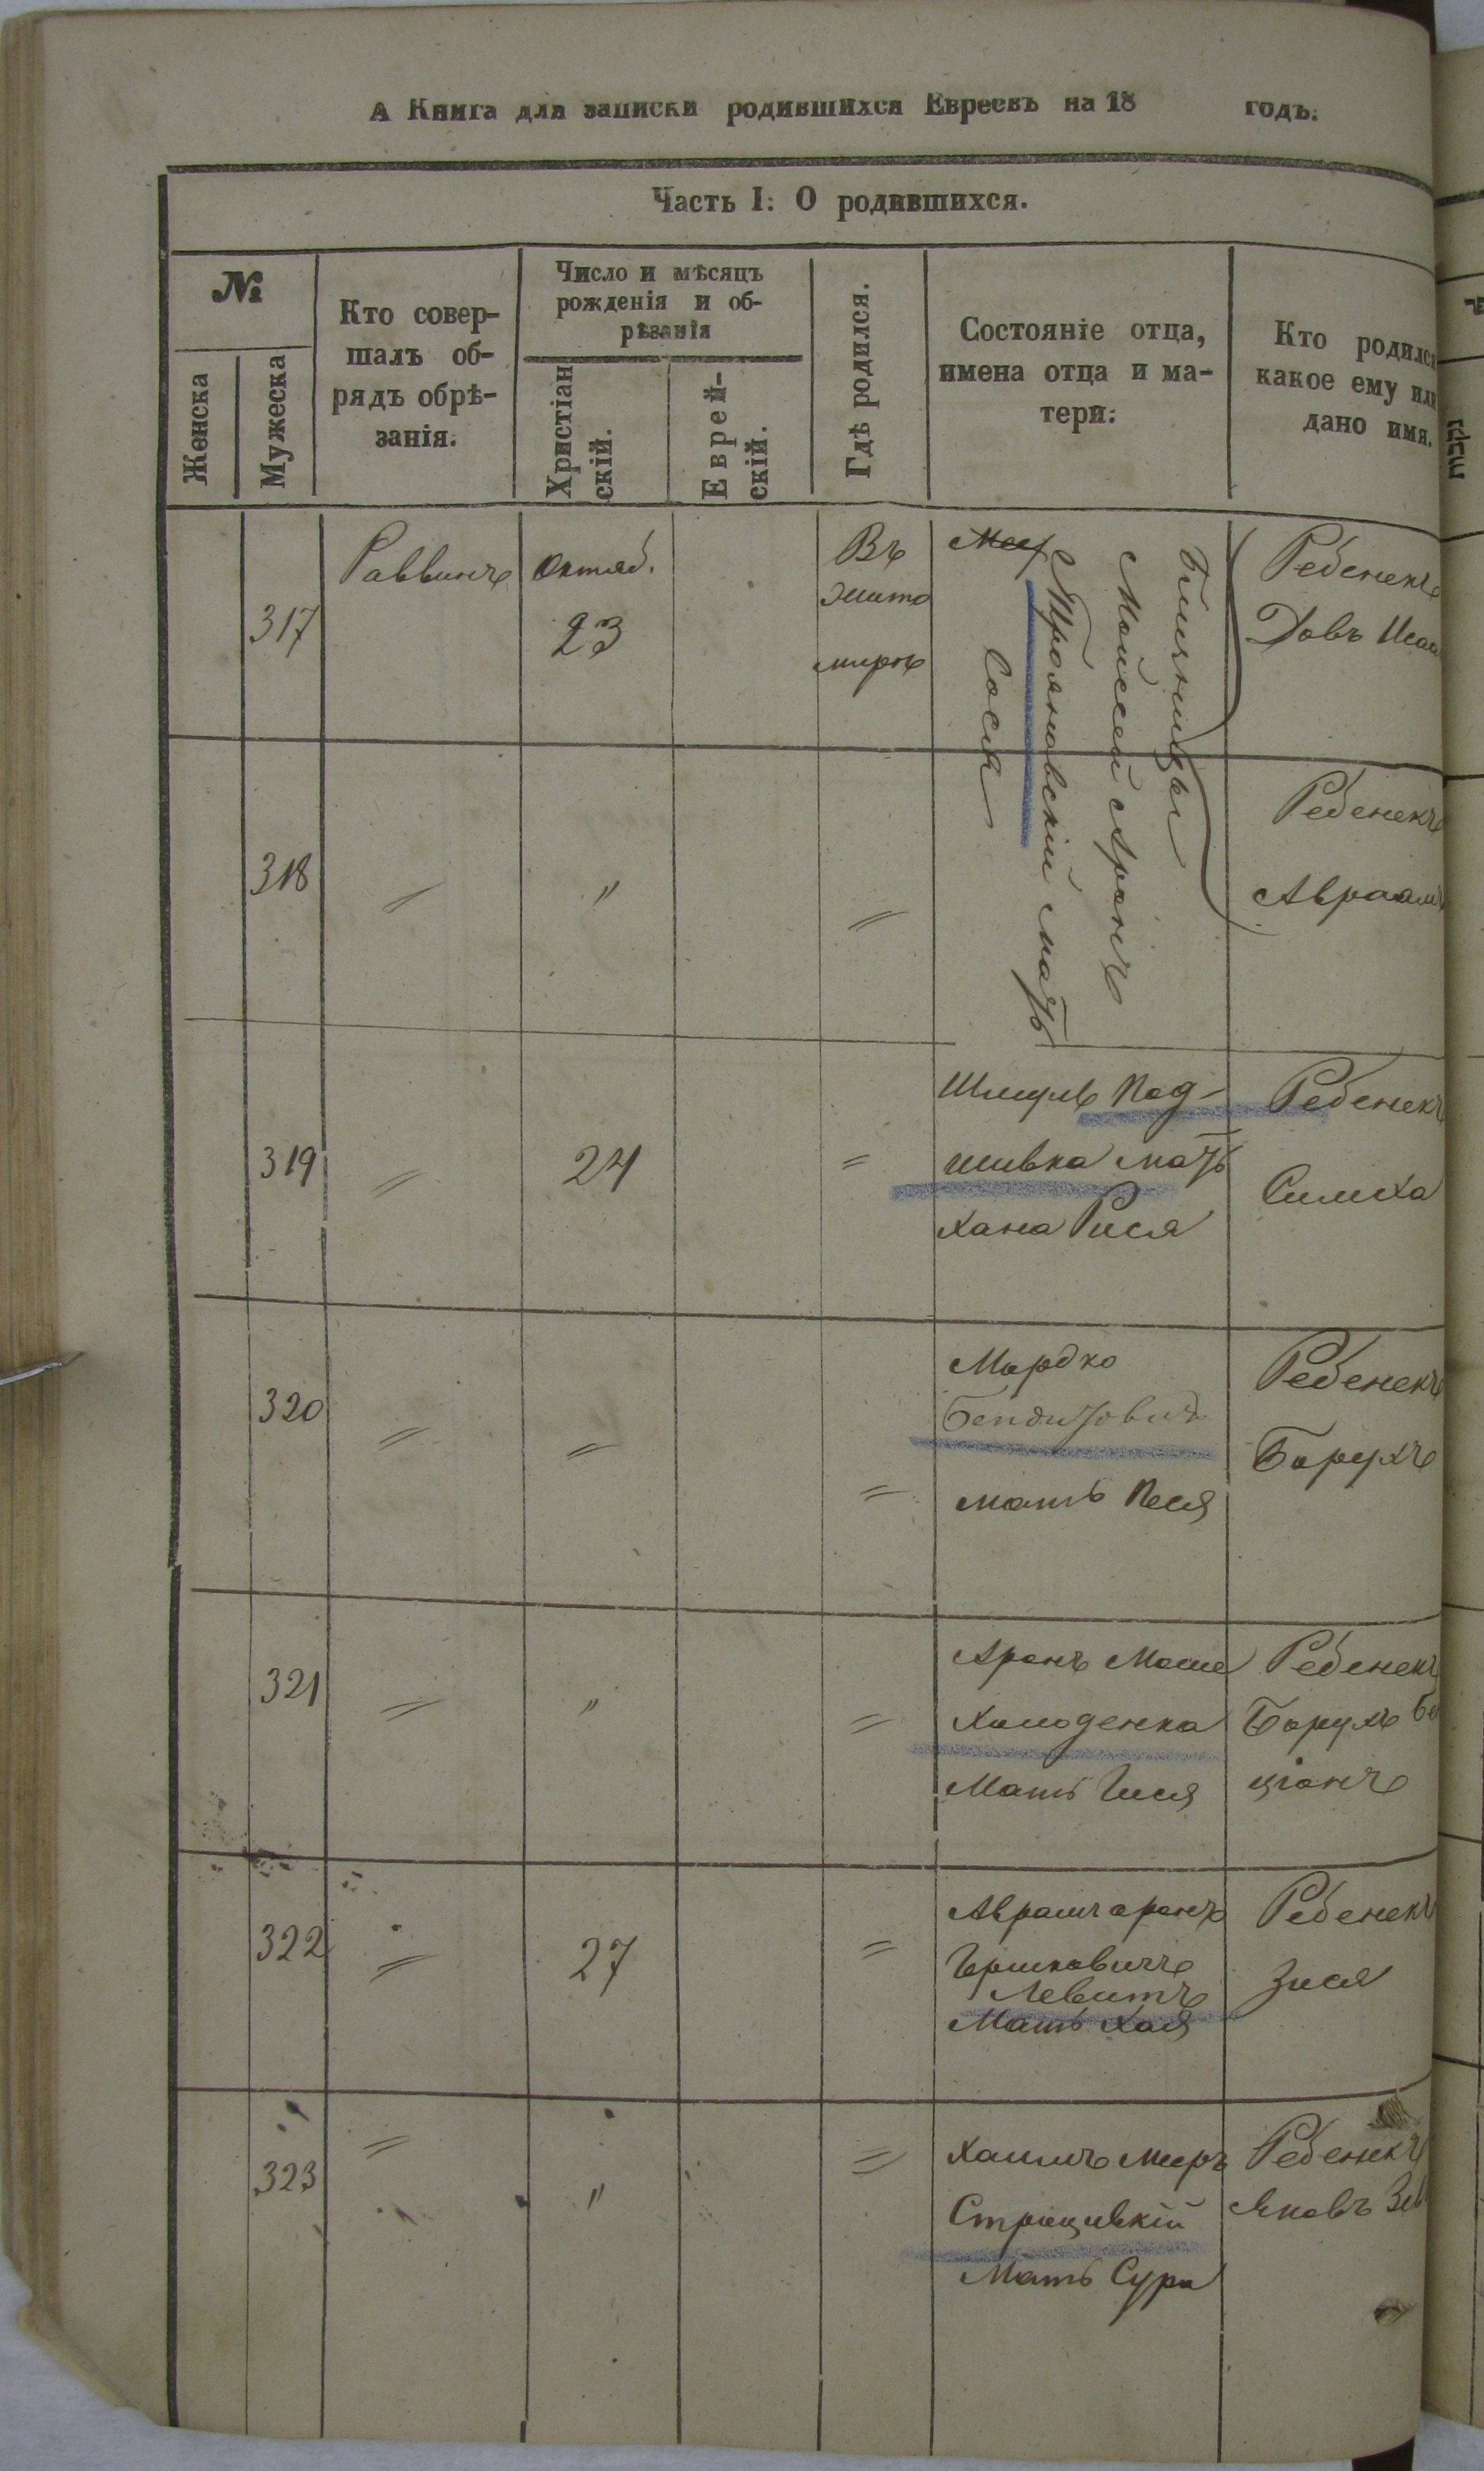 А Книга для записки родившихся Евреевъ на 18 годъ.
Часть I: О родившихся.
№
Женска
Мужеска
Кто совер-
шалъ об-
рядъ обрѣ-
занія.
Число и мѣсяцъ
рожденія и об-
рѣзанія
Христіан
скій.
Еврей-
скій.
Гдѣ родился.
Состояніе отца,
имена отца и ма-
тери:
Кто родилс
какое ему или
дано имя.
317
Раввинъ
Октяб.
23
Въ
Жито
мирѣ
Близницы
Мойсей Аронъ
Трояновскій мать
Сося
Ребенекъ
Довъ Исаа
318
"
"
"
Ребенекъ
Авраамъ
319
"
24
"
Шмуль Под-
шивка мать
Хана Рися
Ребенекъ
Симха
320
"
"
"
Мордко
Бендитовичъ
мать Песя
Ребенекъ
Борухъ
321
"
"
"
Аронъ Моше
Холоденко
Мать Гися
Ребенекъ
Борухъ Бе
ціонъ
322
"
27
"
Аврамъ Аронъ
Гершковичъ
Левитъ
Мать Хая
Ребенекъ
Зися
323
"
"
"
Хаимъ Меръ
Строцивкій
Мать Сура
Ребенекъ
Яковъ Зев